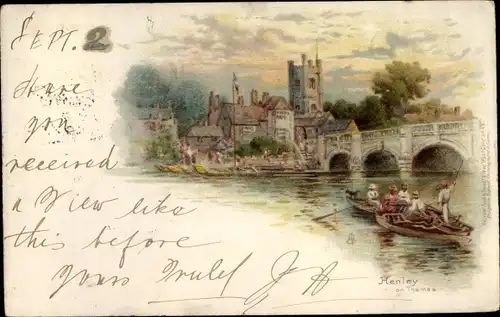 SEPT. 2
Have
you
received
a View like
this before
Yours Truly J H
Henley
on Thames